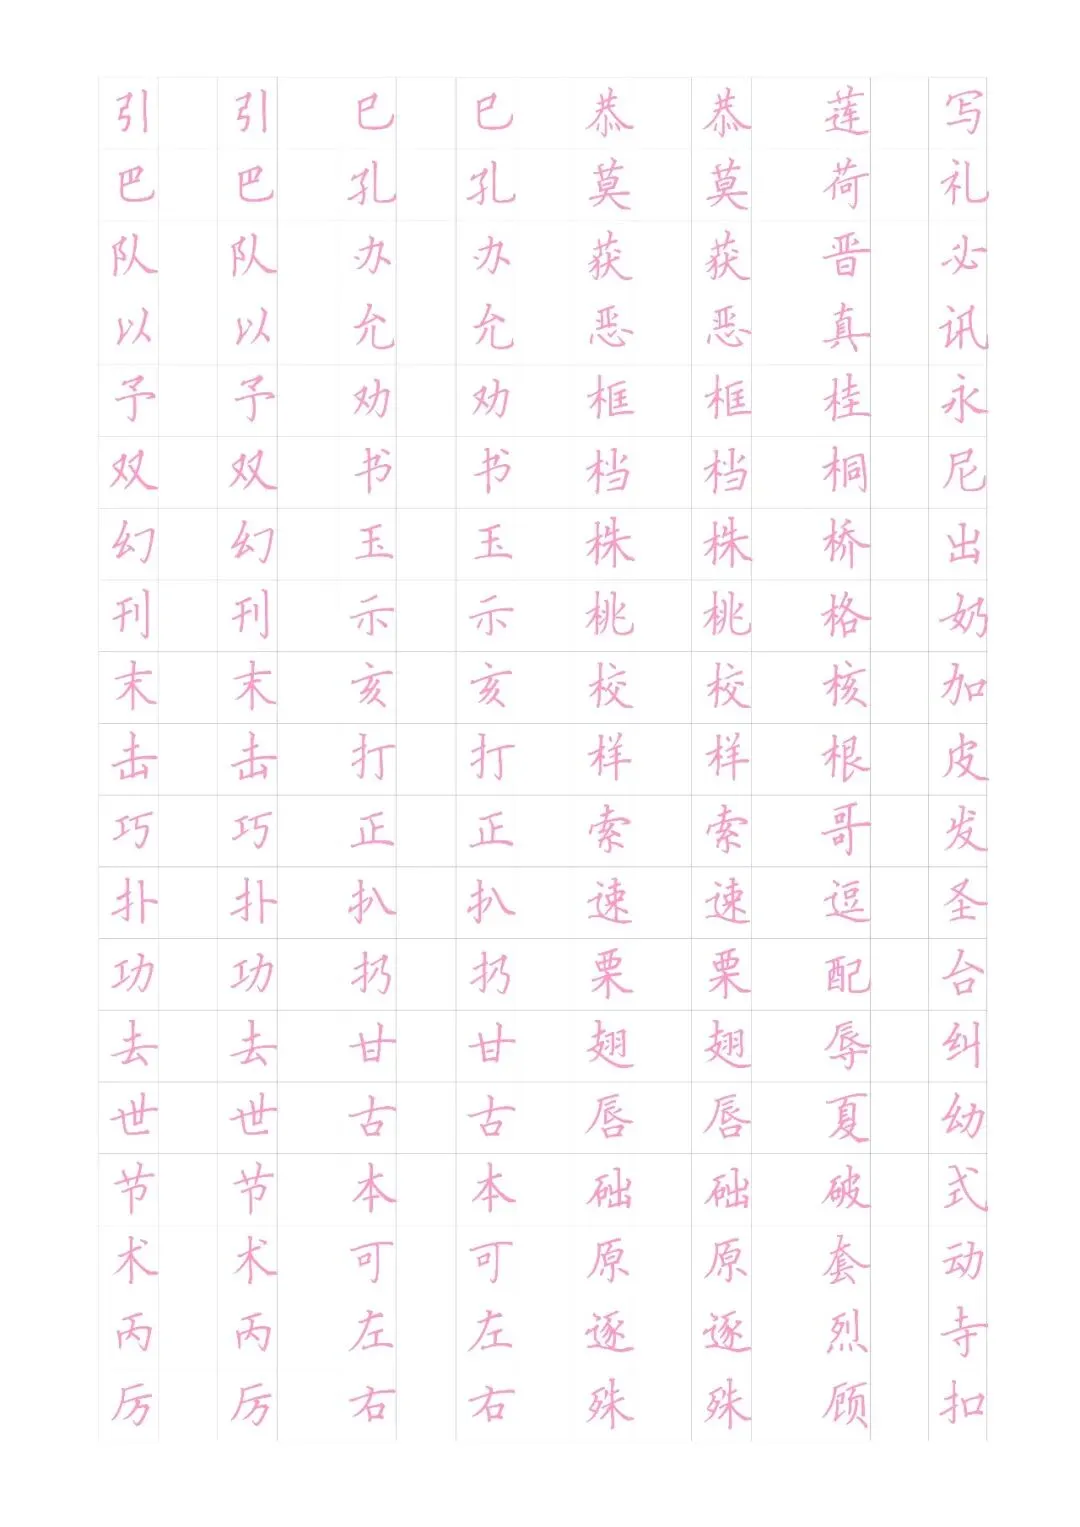 引 引 巳 巳 恭 恭 莲 写
巴 巴 孔 孔 莫 莫 荷 礼
队 队 办 办 获 获 晋 必
以 以 允 允 恶 恶 真 讯
予 予 劝 劝 框 框 桂 永
双 双 书 书 档 档 桐 尼
幻 幻 玉 玉 株 株 桥 出
刊 刊 示 示 桃 桃 格 奶
末 末 亥 亥 校 校 核 加
击 击 打 打 样 样 根 皮
巧 巧 正 正 索 索 哥 发
扑 扑 扒 扒 速 速 逗 圣
功 功 扔 扔 栗 栗 配 台
去 去 甘 甘 翅 翅 辱 纠
世 世 古 古 唇 唇 夏 幼
节 节 本 本 础 础 破 式
术 术 可 可 原 原 套 动
丙 丙 左 左 逐 逐 烈 寺
厉 厉 右 右 殊 殊 顾 扣